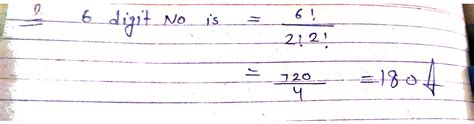 6 digit No is = 6! / 2! 2!
= 720 / 4 = 180